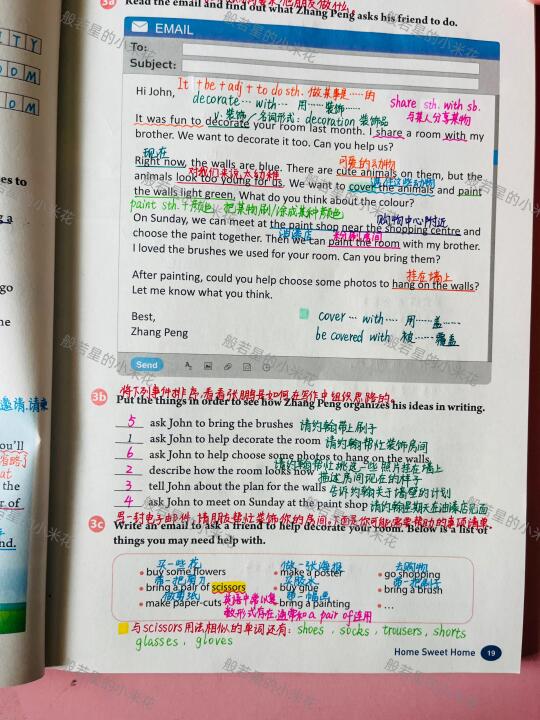 3a Read the email and find out what Zhang Peng asks his friend to do.
EMAIL
To:
Subject:
Hi John,
It + be + adj + to do sth. 做某事是……的
decorate… with… 用……装饰……
share sth. with sb.
与某人分享某物
v. 装饰 / 名词形式: decoration 装饰品
It was fun to decorate your room last month. I share a room with my
brother. We want to decorate it too. Can you help us?
现在
可爱的动物
Right now, the walls are blue. There are cute animals on them, but the
对我们来说太幼稚
遮住这些动物
animals look too young for us. We want to cover the animals and paint
the walls light green. What do you think about the colour?
paint sth. + 颜色 把某物刷/涂成某种颜色
购物中心附近
On Sunday, we can meet at the paint shop near the shopping centre and
油漆店
粉刷房间
choose the paint together. Then we can paint the room with my brother.
I loved the brushes we used for your room. Can you bring them?
挂在墙上
After painting, could you help choose some photos to hang on the walls?
Let me know what you think.
Best,
Zhang Peng
cover … with … 用……盖……
be covered with 被……覆盖
Send
3b
将下列事件排序,看看张鹏是如何在写作中组织思路的。
Put the things in order to see how Zhang Peng organizes his ideas in writing.
5 ask John to bring the brushes 请约翰带上刷子
1 ask John to help decorate the room 请约翰帮忙装饰房间
6 ask John to help choose some photos to hang on the walls
请约翰帮忙挑选一些照片挂在墙上
2 describe how the room looks now 描述房间现在的样子
3 tell John about the plan for the walls 告诉约翰关于墙壁的计划
4 ask John to meet on Sunday at the paint shop 请约翰星期天在油漆店见面
3c
写一封电子邮件,请朋友帮忙装饰你的房间。下面是你可能需要帮助的事项清单。
Write an email to ask a friend to help decorate your room. Below is a list of
things you may need help with.
买一些花
做一张海报
去购物
• buy some flowers • make a poster • go shopping
带一把剪刀
买胶水
带一把刷子
• bring a pair of scissors • buy glue • bring a brush
做剪纸
英语中常以复
带一幅画
• make paper-cuts • bring a painting • …
数形式存在,通常和 a pair of 连用
与scissors用法相似的单词还有: shoes, socks, trousers, shorts
glasses, gloves
Home Sweet Home 19
般若星的小米花